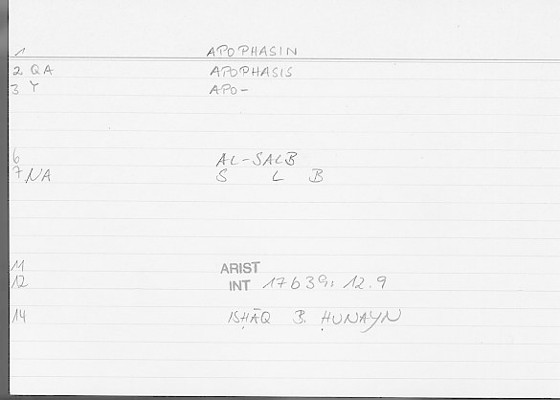 1 APOPHASIN
2. QA APOPHASIS
3 Y APO-
6 AL-SALB
7 NA S L B
11 ARIST
12 INT 17b39, 12.9
14 ISḤĀQ B. ḤUNAYN